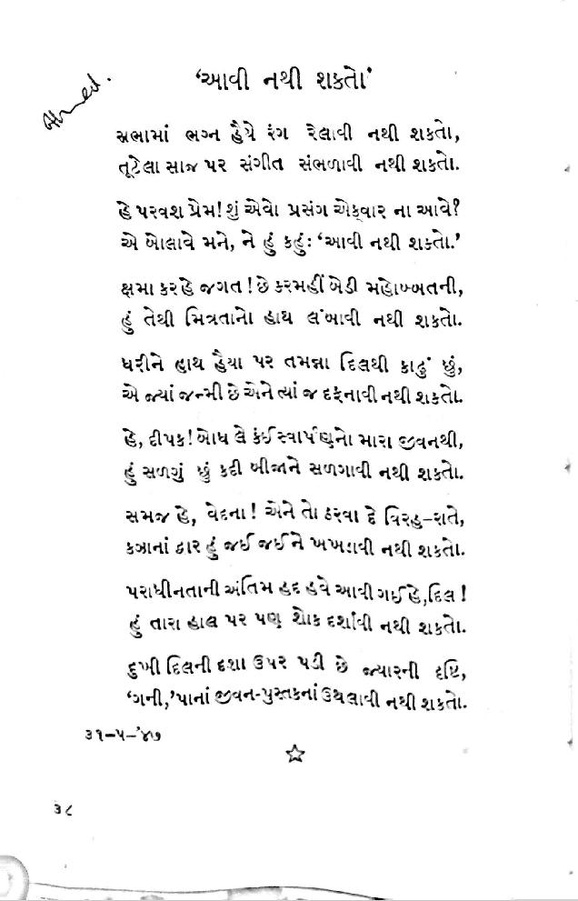 ‘આવી નથી શકતો’
Ahmed.
સભામાં ભગ્ન હૈયે રંગ રેલાવી નથી શકતો,
તૂટેલા સાજ પર સંગીત સંભળાવી નથી શકતો.
હે પરવશ પ્રેમ! શું એવો પ્રસંગ એકવાર ના આવે?
એ બોલાવે મને, ને હું કહું: ‘આવી નથી શકતો.’
ક્ષમા કર હે જગત! છે કરમહીં બેડી મહોબ્બતની,
હું તેથી મિત્રતાનો હાથ લંબાવી નથી શકતો.
ધરીને હાથ હૈયા પર તમન્ના દિલથી કાઢું છું,
એ જ્યાં જન્મી છે એને ત્યાં જ દફનાવી નથી શકતો.
હે, દીપક! બોધ લે કંઈ સ્વાર્પણનો મારા જીવનથી,
હું સળગું છું કદી બીજાને સળગાવી નથી શકતો.
સમજ હે, વેદના! એને તો ઠરવા દે વિરહ–રાતે,
કઝાનાં દ્વાર હું જઈ જઈને ખખડાવી નથી શકતો.
પરાધીનતાની અંતિમ હદ હવે આવી ગઈ હે, દિલ!
હું તારા હાલ પર પણ શોક દર્શાવી નથી શકતો.
દુખી દિલની દશા ઉપર પડી છે જ્યારની દૃષ્ટિ,
‘ગની,’ પાનાં જીવન-પુસ્તકનાં ઉથલાવી નથી શકતો.
૩૧–૫–’૪૭
૩૮